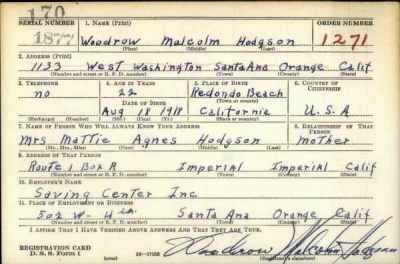 170
SERIAL NUMBER 1. NAME (Print) ORDER NUMBER
1877 Woodrow Malcolm Hodgson 1271
(First) (Middle) (Last)
2. ADDRESS (Print)
1133 West Washington Santa Ana Orange Calif
(Number and street or R. F. D. number) (Town) (County) (State)
3. TELEPHONE 4. AGE IN YEARS 5. PLACE OF BIRTH 6. COUNTRY OF CITIZENSHIP
no 22 Redondo Beach
DATE OF BIRTH (Town or county)
Aug 18 1918 California U.S.A
(Exchange) (Number) (Mo.) (Day) (Yr.) (State or country)
7. NAME OF PERSON WHO WILL ALWAYS KNOW YOUR ADDRESS 8. RELATIONSHIP OF THAT PERSON
Mrs Mattie Agnes Hodgson mother
(Mr., Mrs., Miss) (First) (Middle) (Last)
9. ADDRESS OF THAT PERSON
Route 1 Box R Imperial Imperial Calif
(Number and street or R. F. D. number) (Town) (County) (State)
10. EMPLOYER'S NAME
Saving Center Inc
11. PLACE OF EMPLOYMENT OR BUSINESS
502 W- 4th Santa Ana Orange Calif
(Number and street or R. F. D. number) (Town) (County) (State)
I AFFIRM THAT I HAVE VERIFIED ABOVE ANSWERS AND THAT THEY ARE TRUE.
REGISTRATION CARD
D. S. S. Form 1 (over) Woodrow Malcolm Hodgson